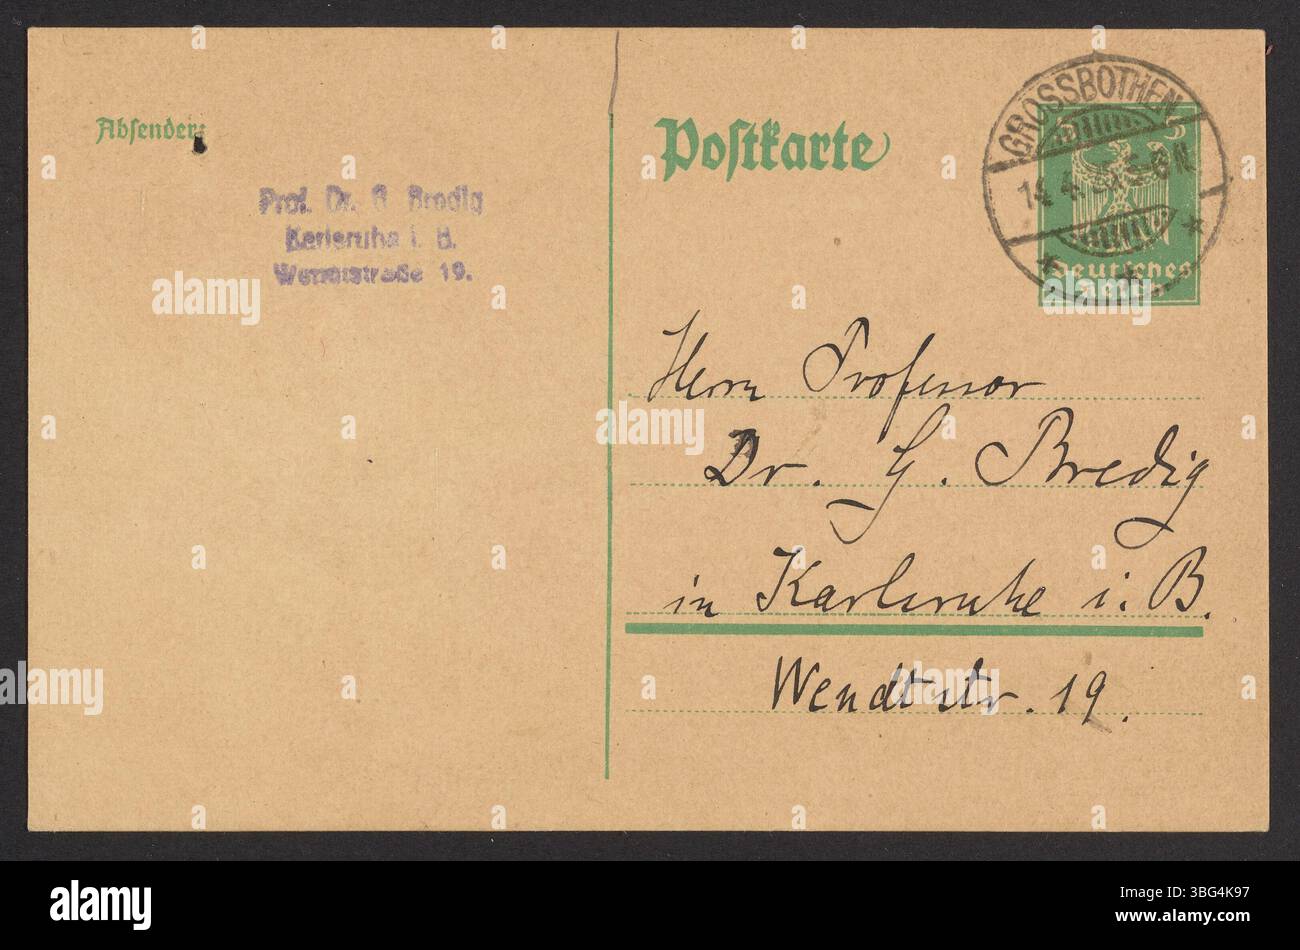 Absender:
Prof. Dr. G. Bredig
Karlsruhe i. B.
Wendtstraße 19.
Postkarte
GROSSBOTHEN
14.4.
5-6N
5
Deutsches
Reich
Herrn Professor
Dr. G. Bredig
in Karlsruhe i. B.
Wendtstr. 19.
alamy
alamy
Image ID: 3BG4K97
www.alamy.com